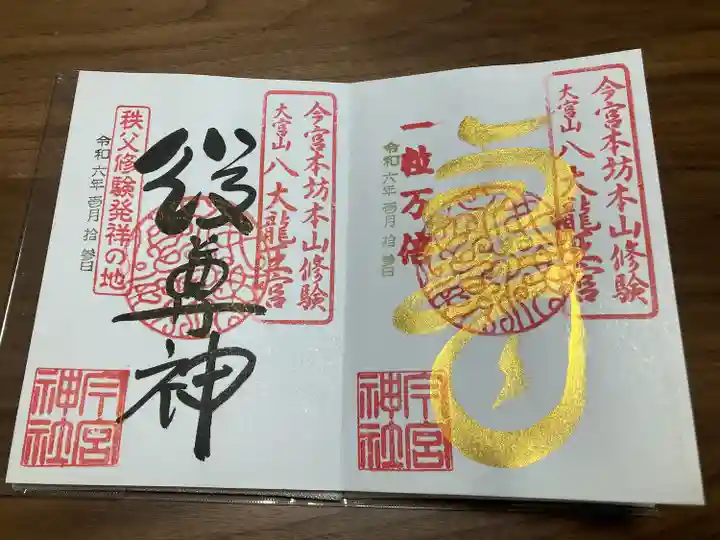 今宮本坊本山修験
大宮山 八大龍王宮
一粒万倍
令和六年 壱月 拾参日
今宮神社
今宮本坊本山修験
大宮山 八大龍王宮
役尊神
秩父修験発祥の地
令和六年 壱月 拾参日
今宮神社